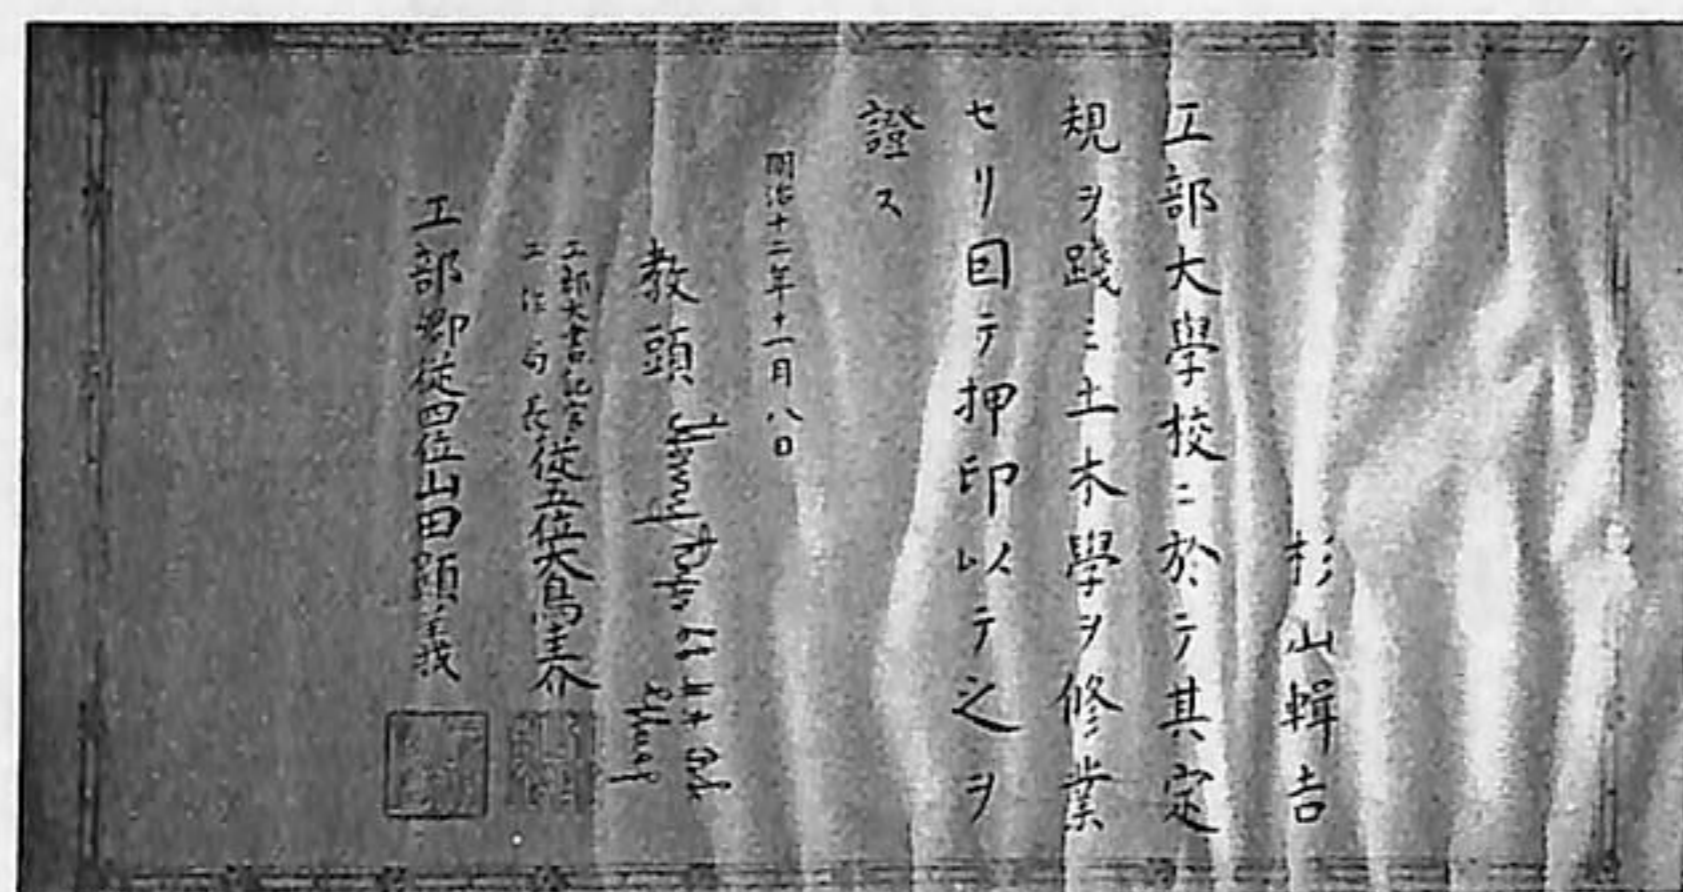 杉山輯吉
工部大學校ニ於テ其定
規ヲ踐ミ土木學ヲ修業
セリ因テ押印以テ之ヲ
證ス
明治十二年十一月八日
教頭 Henry Dyer
工部大書記官
工作局長 従五位大鳥圭介
工部卿従四位山田顕義